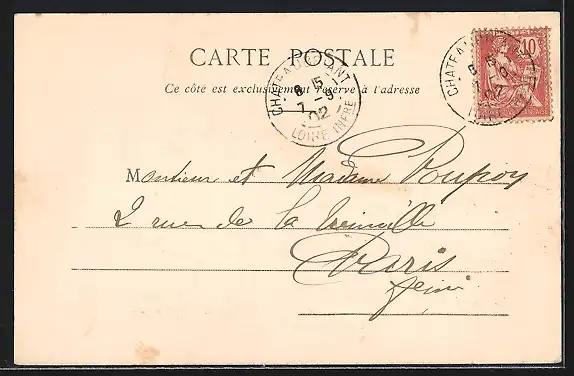 CARTE POSTALE
Ce côté est exclusivement réservé à l'adresse
CHATEAUBRIANT
8 15
7 -9
02
LOIRE INFRE
10
CHATEAUBRIANT
8 15
7 -9
02
Monsieur et Madame
2 rue de la
Paris
Seine